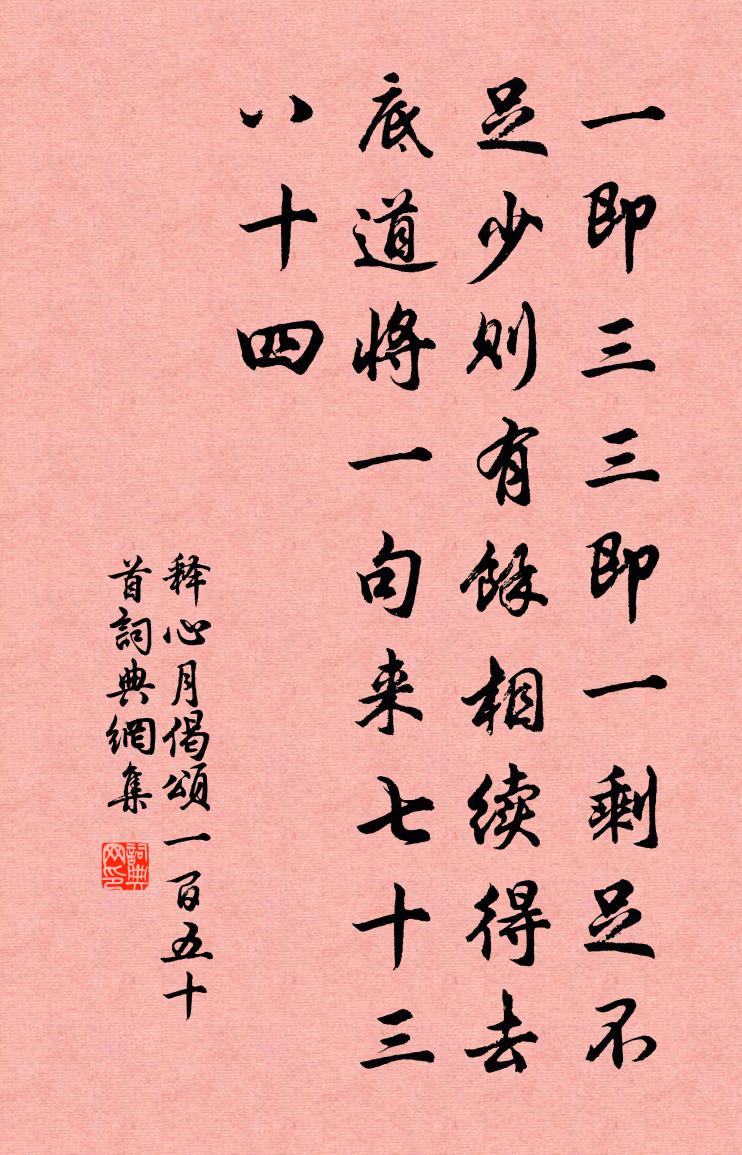 一即三三即一剩足不
足少则有馀相续得去
底道将一句来七十三
八十四
释心月偈頌一百五十
首詞典網集
詞典網印